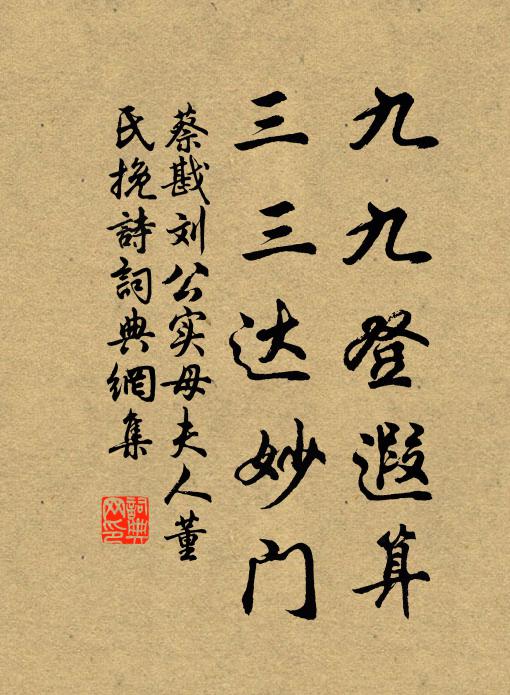 九九登遐算
三三达妙门
蔡戡刘公实母夫人董
氏挽詩詞典網集
詞典
网印